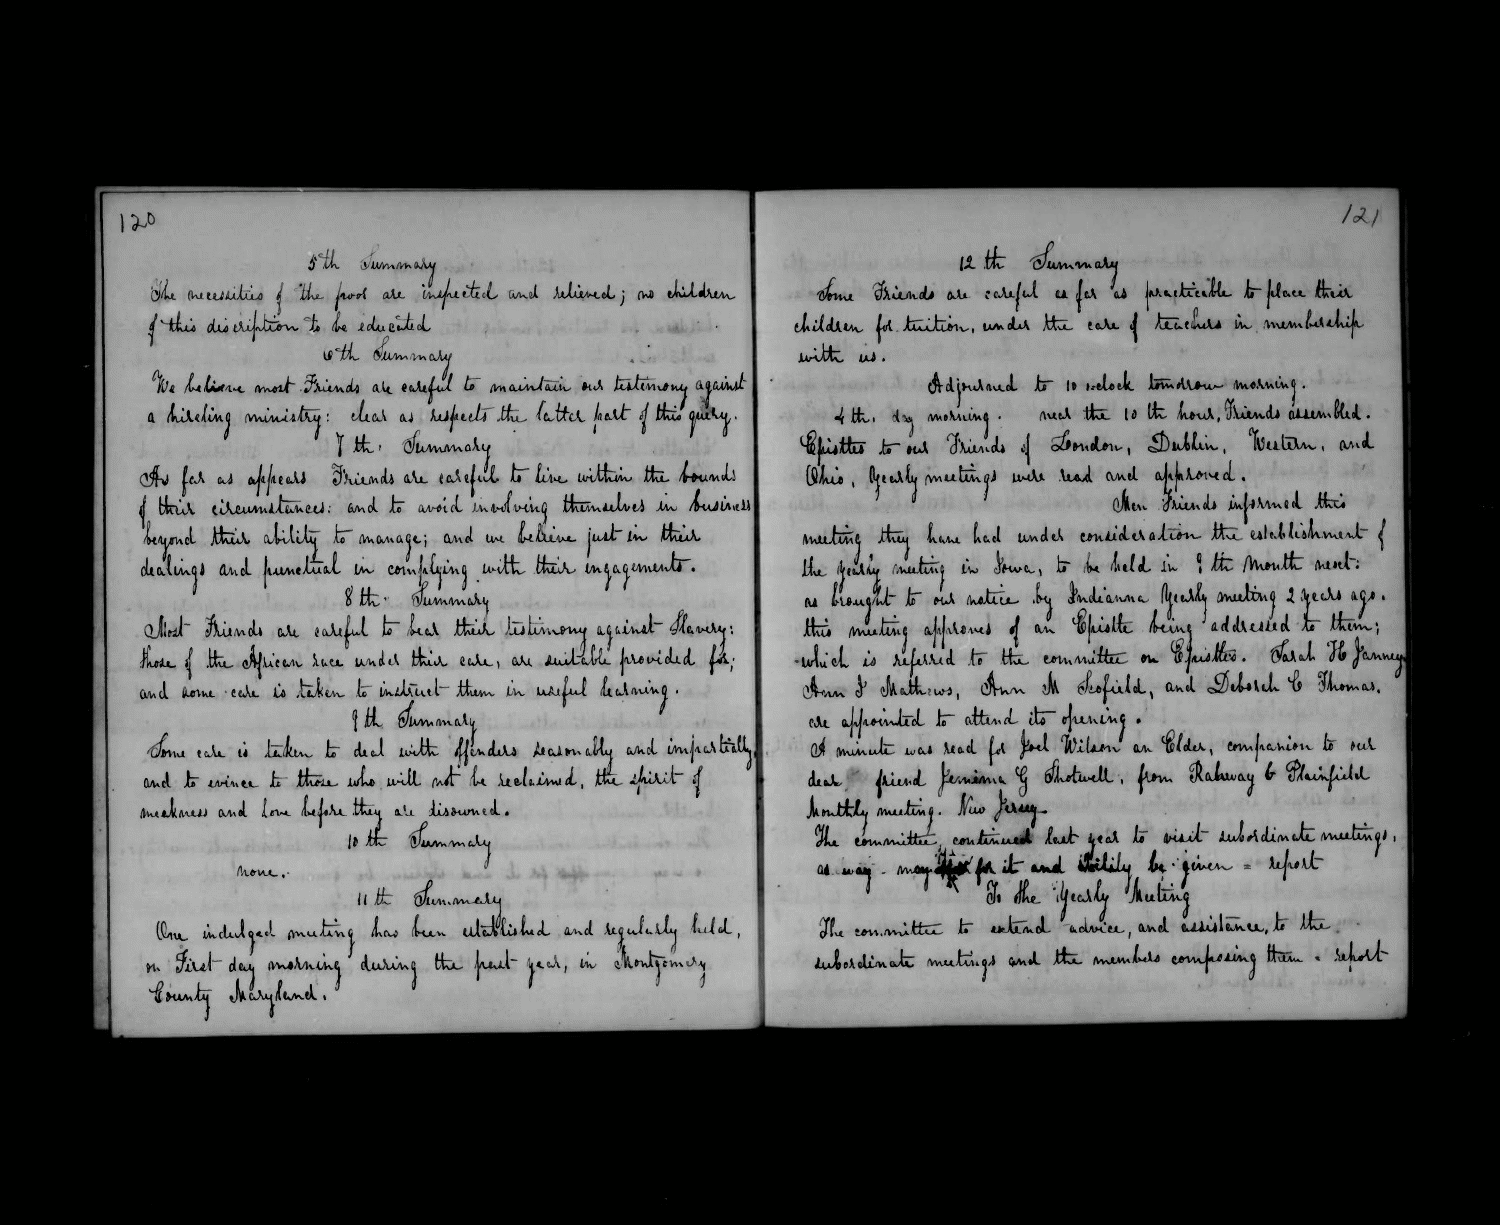 120
5th Summary
The necessities of the poor are inspected and relieved; no children
of this discription to be educated
6th Summary
We believe most Friends are careful to maintain our testimony against
a hireling ministry: clear as respects the latter part of this query.
7th. Summary
As far as appears Friends are careful to live within the bounds
of their circumstances: and to avoid involving themselves in business
beyond their ability to manage; and we believe just in their
dealings and punctual in complying with their engagements.
8th. Summary
Most Friends are careful to bear their testimony against Slavery:
those of the African race under their care, are suitable provided for;
and some care is taken to instruct them in useful learning.
9th Summary
Some care is taken to deal with offenders seasonably and impartially,
and to evince to those who will not be reclaimed, the spirit of
meekness and love before they are disowned.
10th Summary
none.
11th Summary
One indulged meeting has been established and regularly held,
on First day morning during the past year, in Montgomery
County Maryland.
121
12th Summary
Some Friends are careful as far as practicable to place their
children for tuition, under the care of teachers in membership
with us.
Adjourned to 10 oclock tomorrow morning.
4th. day morning. near the 10th hour, Friends assembled.
Epistles to our Friends of London, Dublin, Western, and
Ohio, Yearly meetings were read and approved.
Men Friends informed this
meeting they have had under consideration the establishment of
the yearly meeting in Iowa, to be held in 9th Month next:
as brought to our notice by Indianna Yearly meeting 2 years ago.
this meeting approves of an Epistle being addressed to them;
which is referred to the committee on Epistles. Sarah H Janney
Ann J Mathews, Ann M Scofield, and Deborah C Thomas.
are appointed to attend its opening.
A minute was read for Joel Wilson an Elder, companion to our
dear friend Jemima G Shotwell, from Rahway & Plainfield
Monthly meeting. New Jersey
The committee, continued last year to visit subordinate meetings,
as way may for it and ability be given = report
To the Yearly Meeting
The committee to extend advice, and assistance, to the
subordinate meetings and the members composing them = report